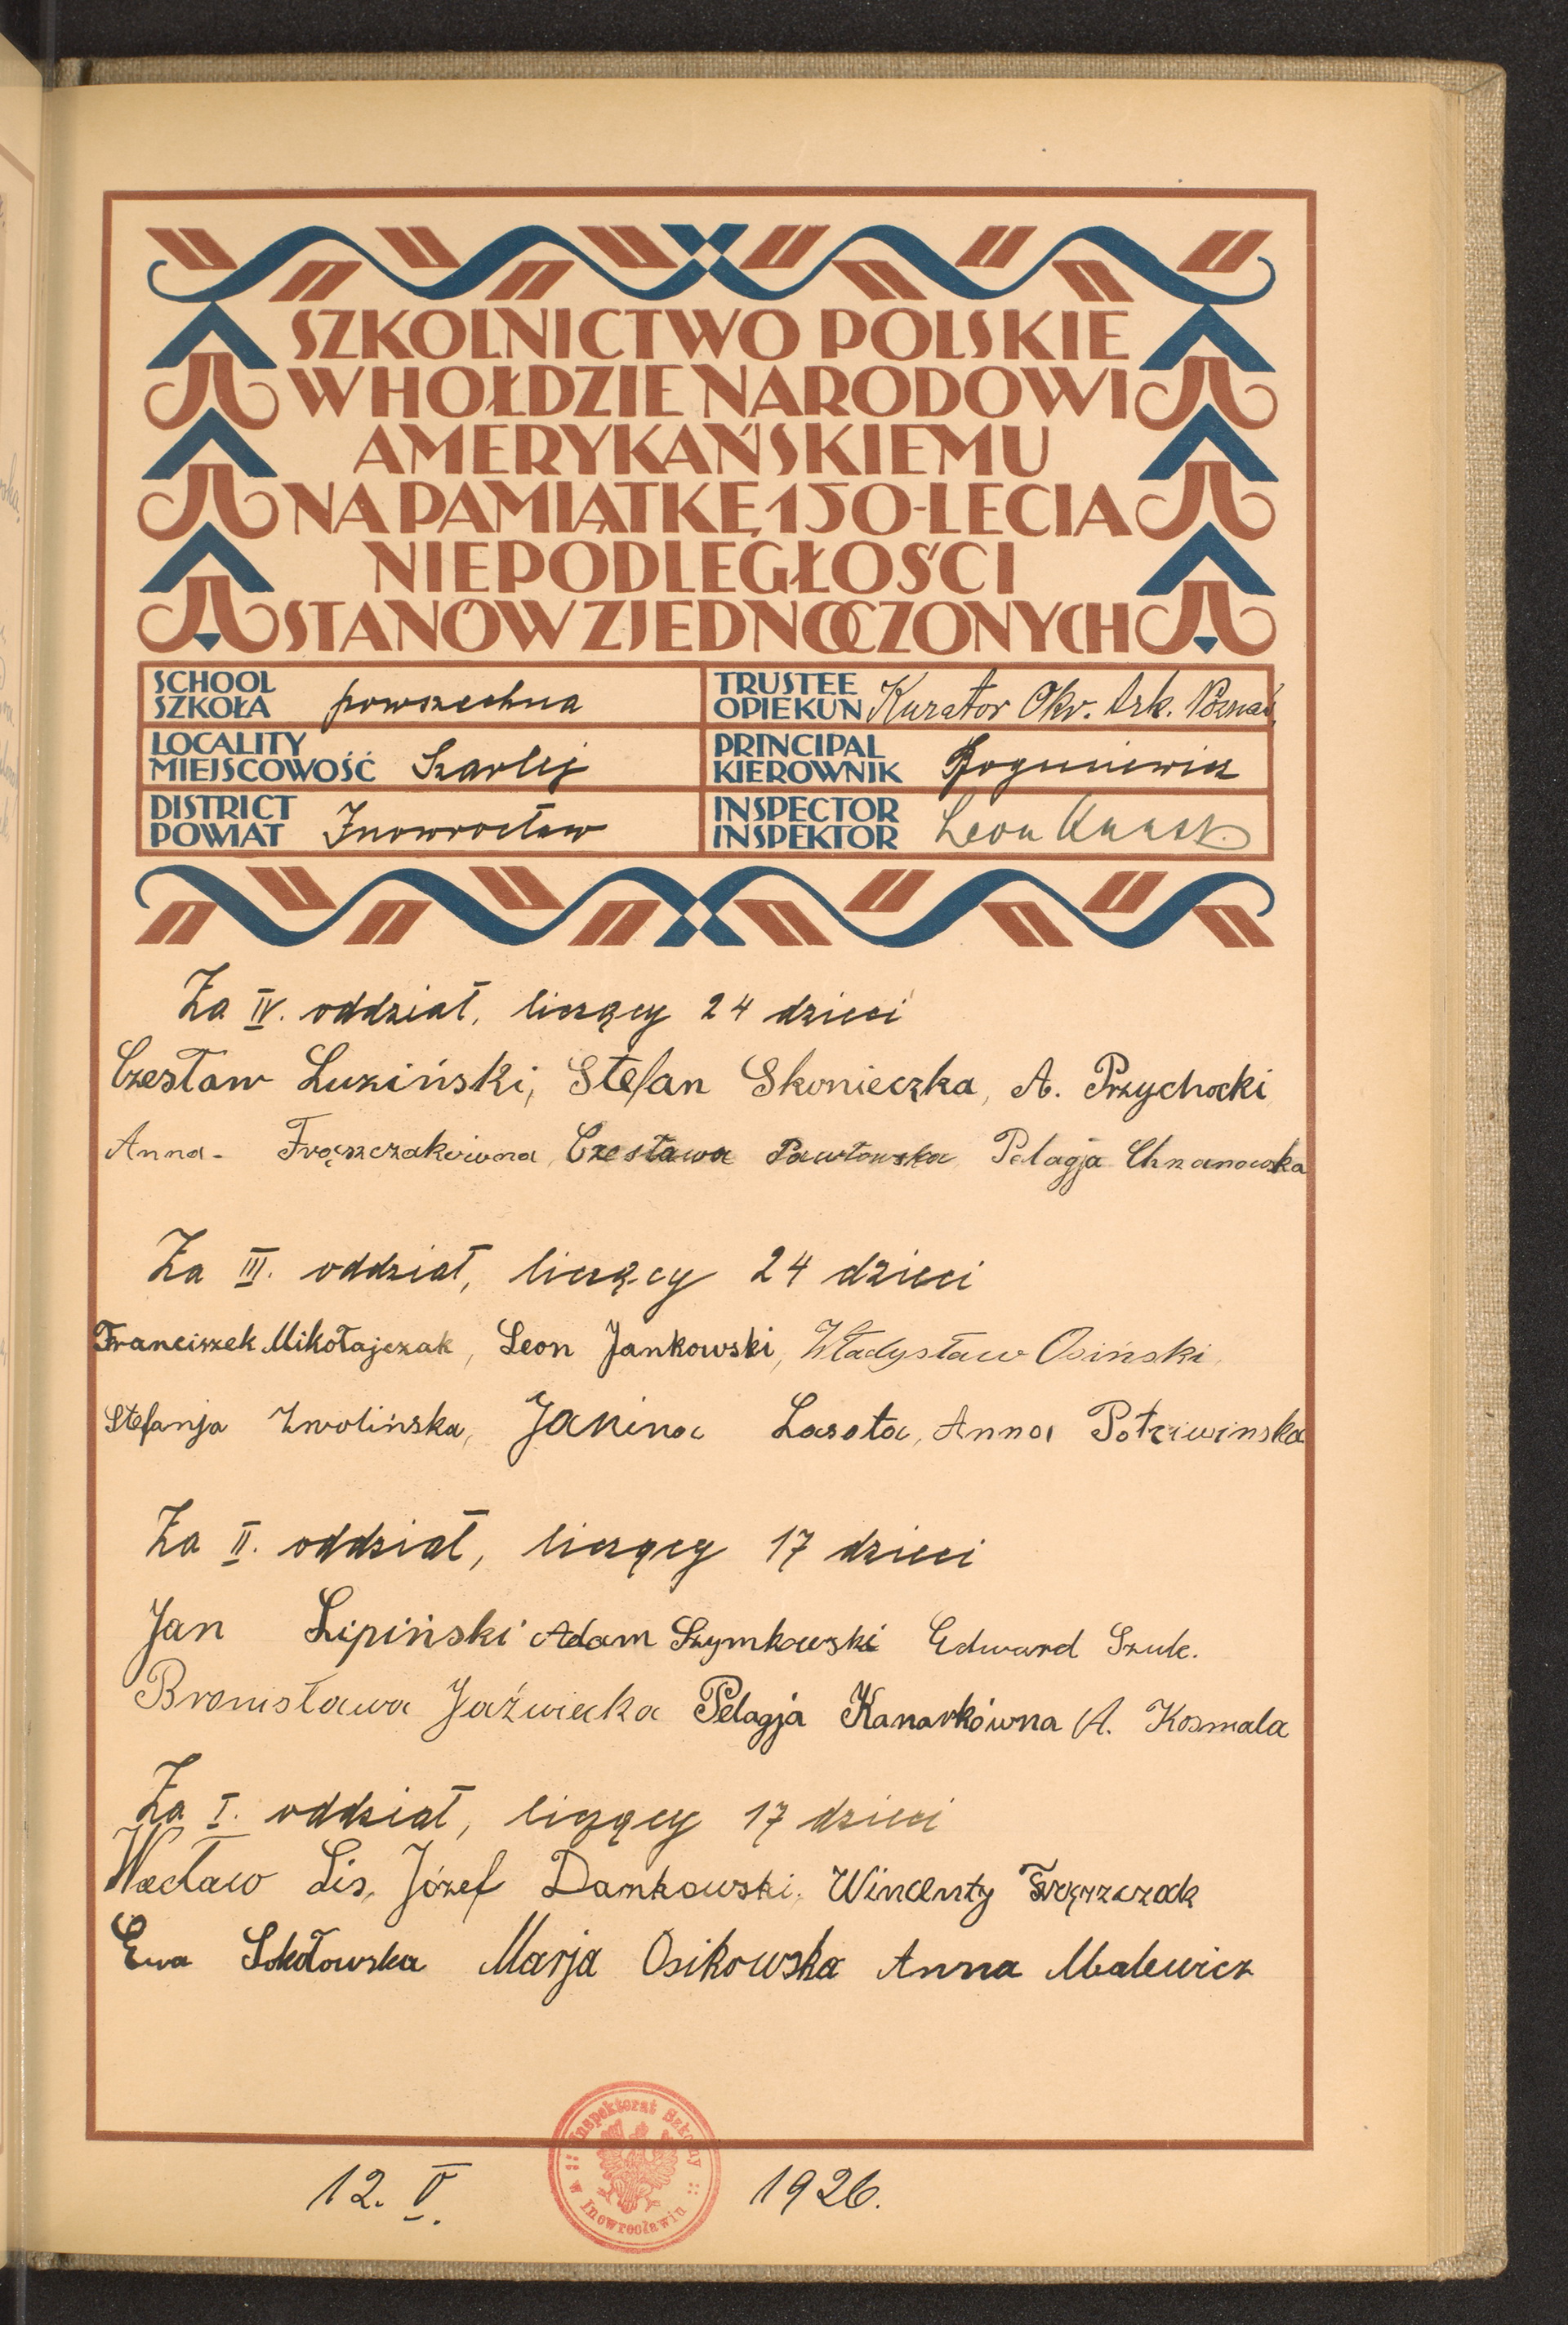 SZKOLNICTWO POLSKIE
W HOŁDZIE NARODOWI
AMERYKAŃSKIEMU
NA PAMIĄTKĘ 150-LECIA
NIEPODLEGŁOŚCI
STANÓW ZJEDNOCZONYCH
SCHOOL
SZKOŁA powszechna
TRUSTEE
OPIEKUN Kurator Okr. Szk. Poznań
LOCALITY
MIEJSCOWOŚĆ Szarlej
PRINCIPAL
KIEROWNIK
DISTRICT
POWIAT Inowrocław
INSPECTOR
INSPEKTOR Leon
Za IV. oddział, liczący 24 dzieci
Czesław Luziński, Stefan Skonieczka, A. Przychocki
Anna Frąszczakówna, Czesława Pawłowska, Pelagja Chzanowska
Za III. oddział, liczący 24 dzieci
Franciszek Mikołajczak, Leon Jankowski, Władysław Osiński,
Stefanja Zwolińska, Janina Lasota, Anna
Za II. oddział, liczący 17 dzieci
Jan Lipiński Adam Szymkowski Edward Szulc.
Bronisława Jaźwiecka Pelagja Kanarkówna A. Kosmala
Za I. oddział, liczący 17 dzieci
Wacław Lis, Józef Damkowski, Wincenty Frąszczack
Ewa Sokołowska Marja Osikowska Anna Malewicz
Inspektorat Szkolny w Inowrocławiu
12. V. 1926.